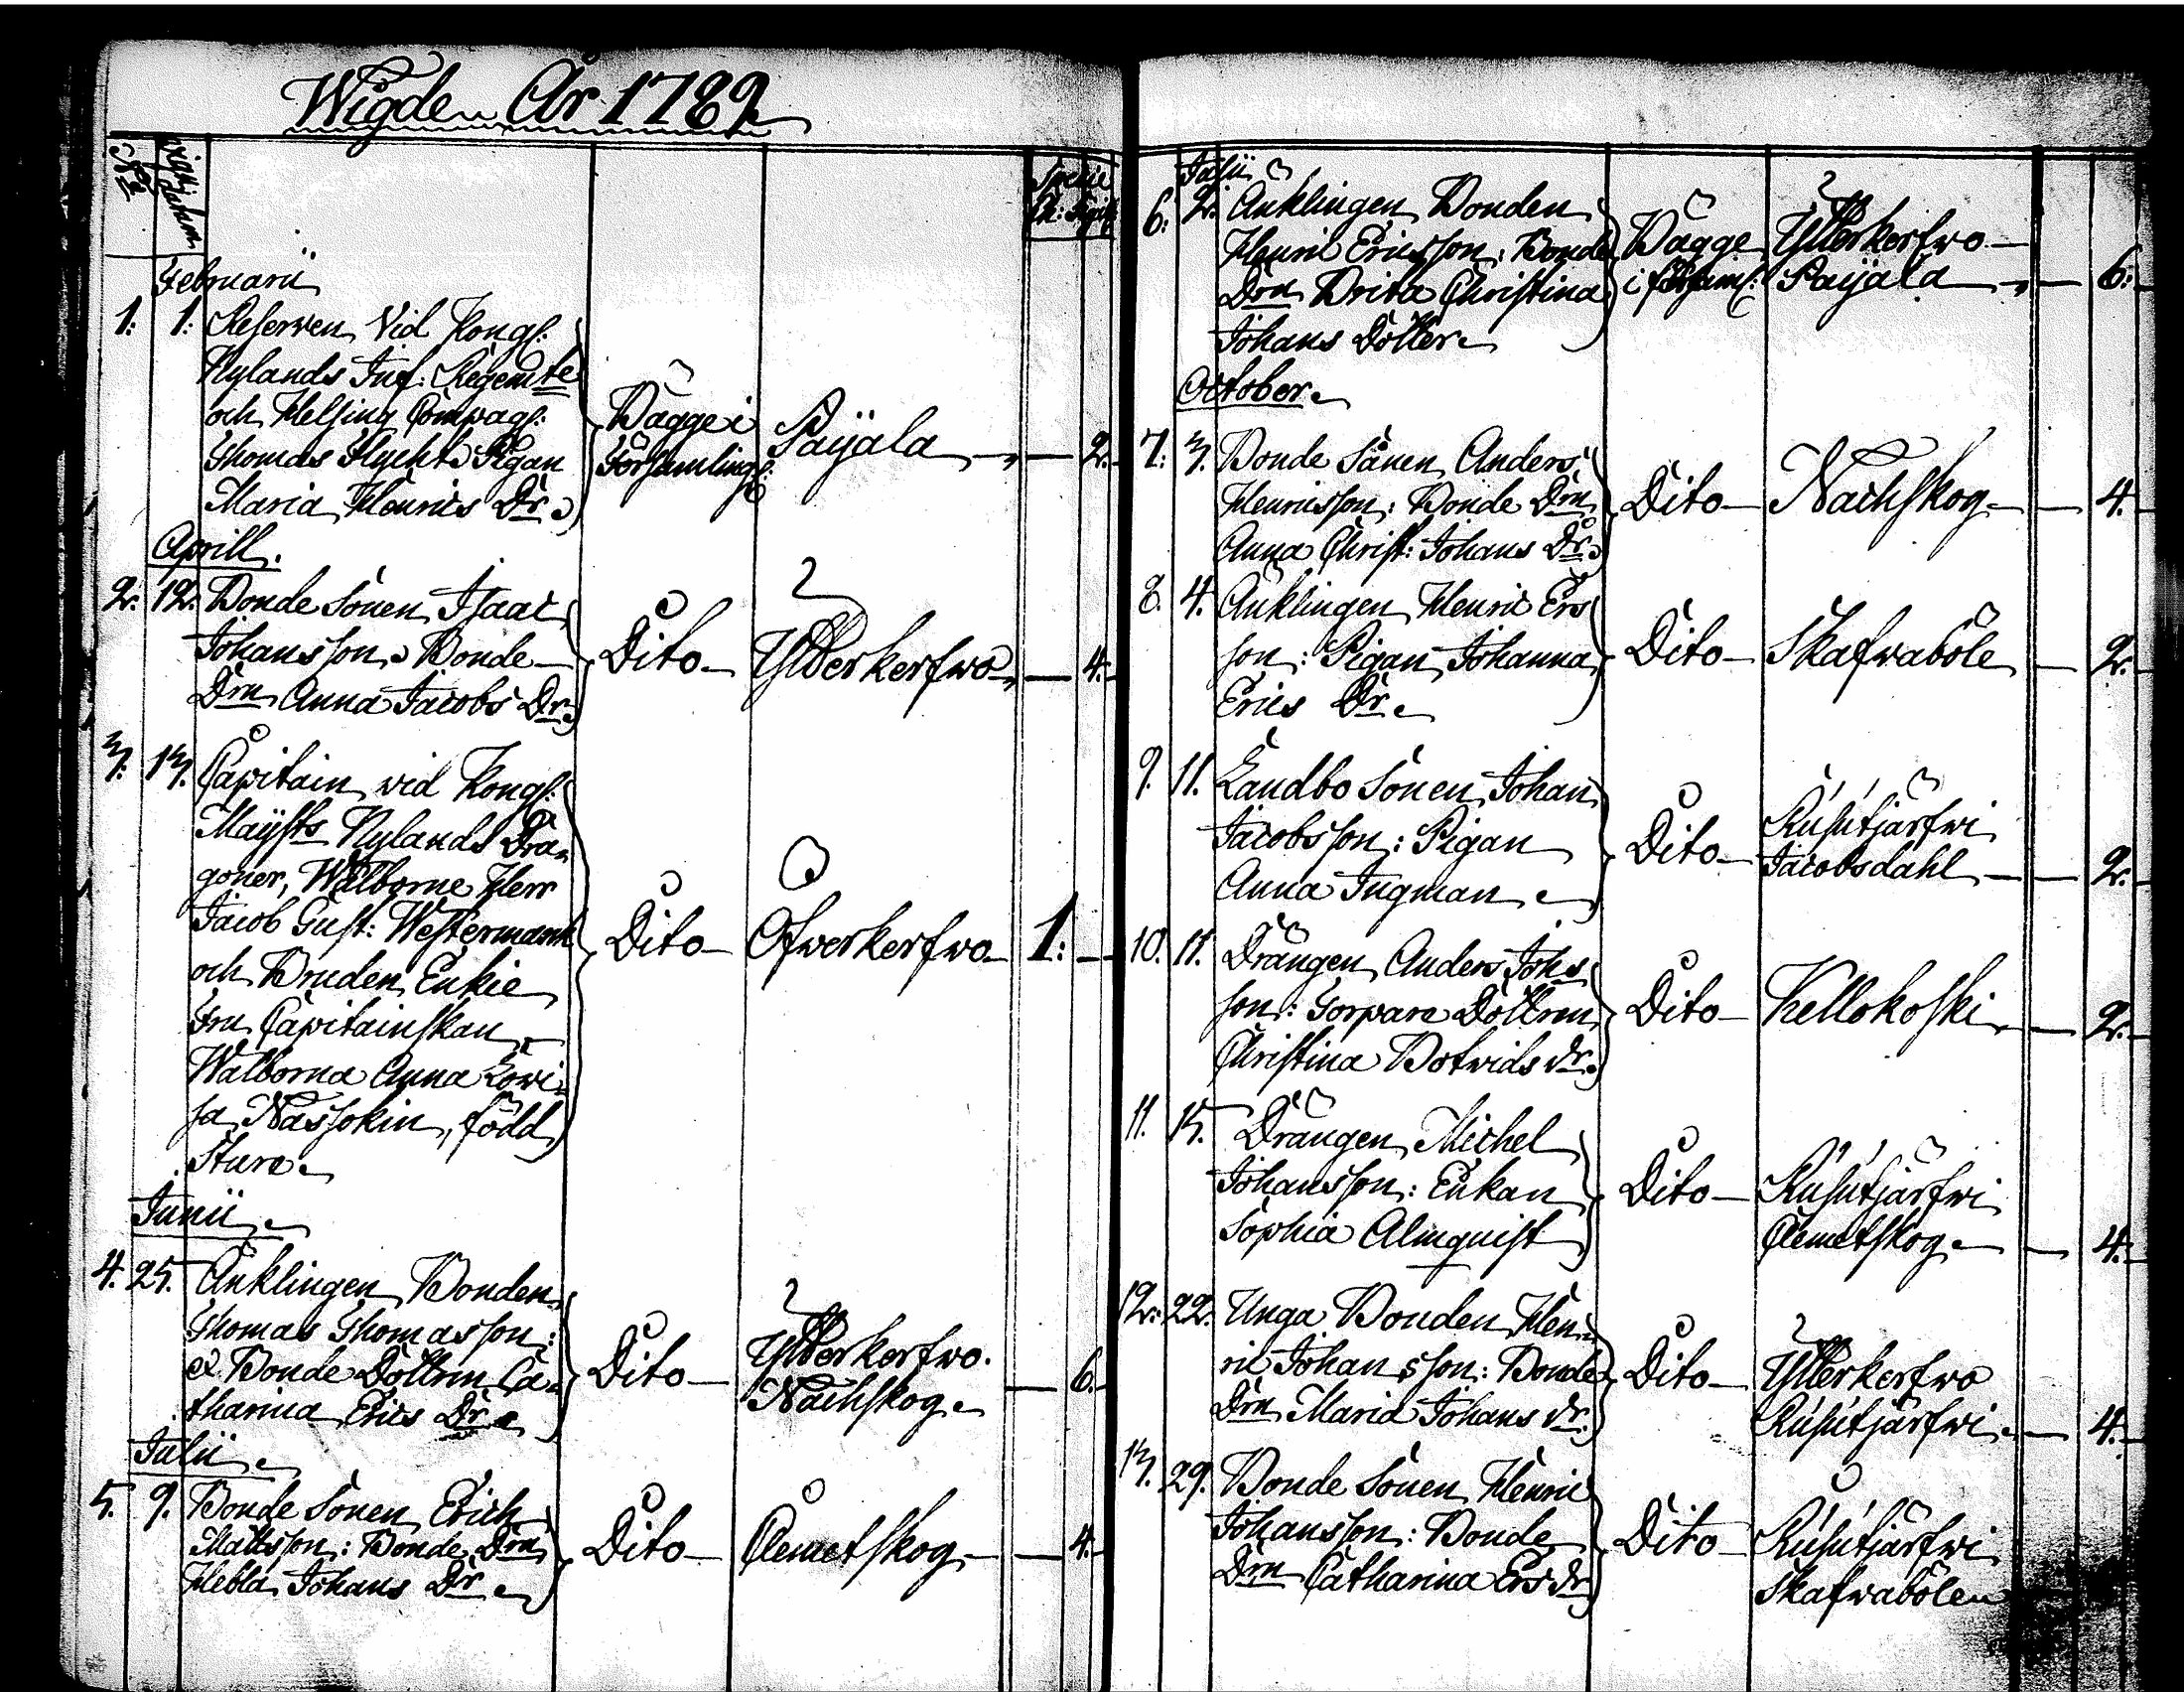 Wigde År 1789
No
Wigsel datum
Specie
Rd: Sk
Februarii
1: 1: Reserven vid Kongl:
Nylands Inf: Regemte
och Helsing Compagl:
Thomas Flycht Pigan
Maria Henrics Dr.
Bägge i
Församlingl:
Paijala — 2.
Aprill.
2. 12. Bonde Sonen Isaac
Johansson Bonde
Drn Anna Jacobs Dr.
Dito Ytterkerfwo — 4.
3. 13. Capitain vid Kongl:
Maijsts Nylands Dra-
goner, Wälborne Herr
Jacob Gust: Westermarck
och Bruden Enkie
Fru Capitainskan
Wälborna Anna Lowi-
sa Nassokin, född
Sture.
Dito Öfwerkerfwo 1: —
Junii.
4. 25. Änklingen Bonden
Thomas Thomasson:
& Bonde Dottren Ca-
tharina Erics Dr.
Dito Ytterkerfwo.
Nackskog. — 6.
Julii.
5. 9. Bonde Sonen Erich
Mattsson: Bonde Drn
Hebla Johans Dr.
Dito Clemetskog — 4.
Julii
6: 2. Änklingen Bonden
Henric Ericsson: Bonde
Drn Brita Christina
Johans Dotter.
Bägge
i församl:
Ytterkerfwo
Paijala — 6:
October.
7: 3. Bonde Sånen Anders
Henricsson: Bonde Drn
Anna Christ: Johans Dr.
Dito Nackskog — 4.
8. 4. Änklingen Henric Ers
son: Pigan Johanna
Erics Dr.
Dito Skafwaböle — 2.
9. 11. Landbo Sonen Johan
Jacobsson: Pigan
Anna Ingman
Dito Rusutjärfwi
Jacobsdahl — 2.
10. 11. Drängen Anders Johs
son: Torpare Dottren
Christina Botvids dr.
Dito Kellokoski — 2.
11. 15. Drängen Michel
Johansson: Enkan
Sophia Almquist
Dito Rusutjärfwi
Clemetskog — 4.
12: 22. Unga Bonden Hen-
ric Johansson: Bonde
Drn Maria Johans dr.
Dito Ytterkerfwo
Rusutjärfwi — 4.
13. 29. Bonde Sonen Henric
Johansson: Bonde
Drn Catharina Ers dr
Dito Rusutjärfwi
Skafwabölen